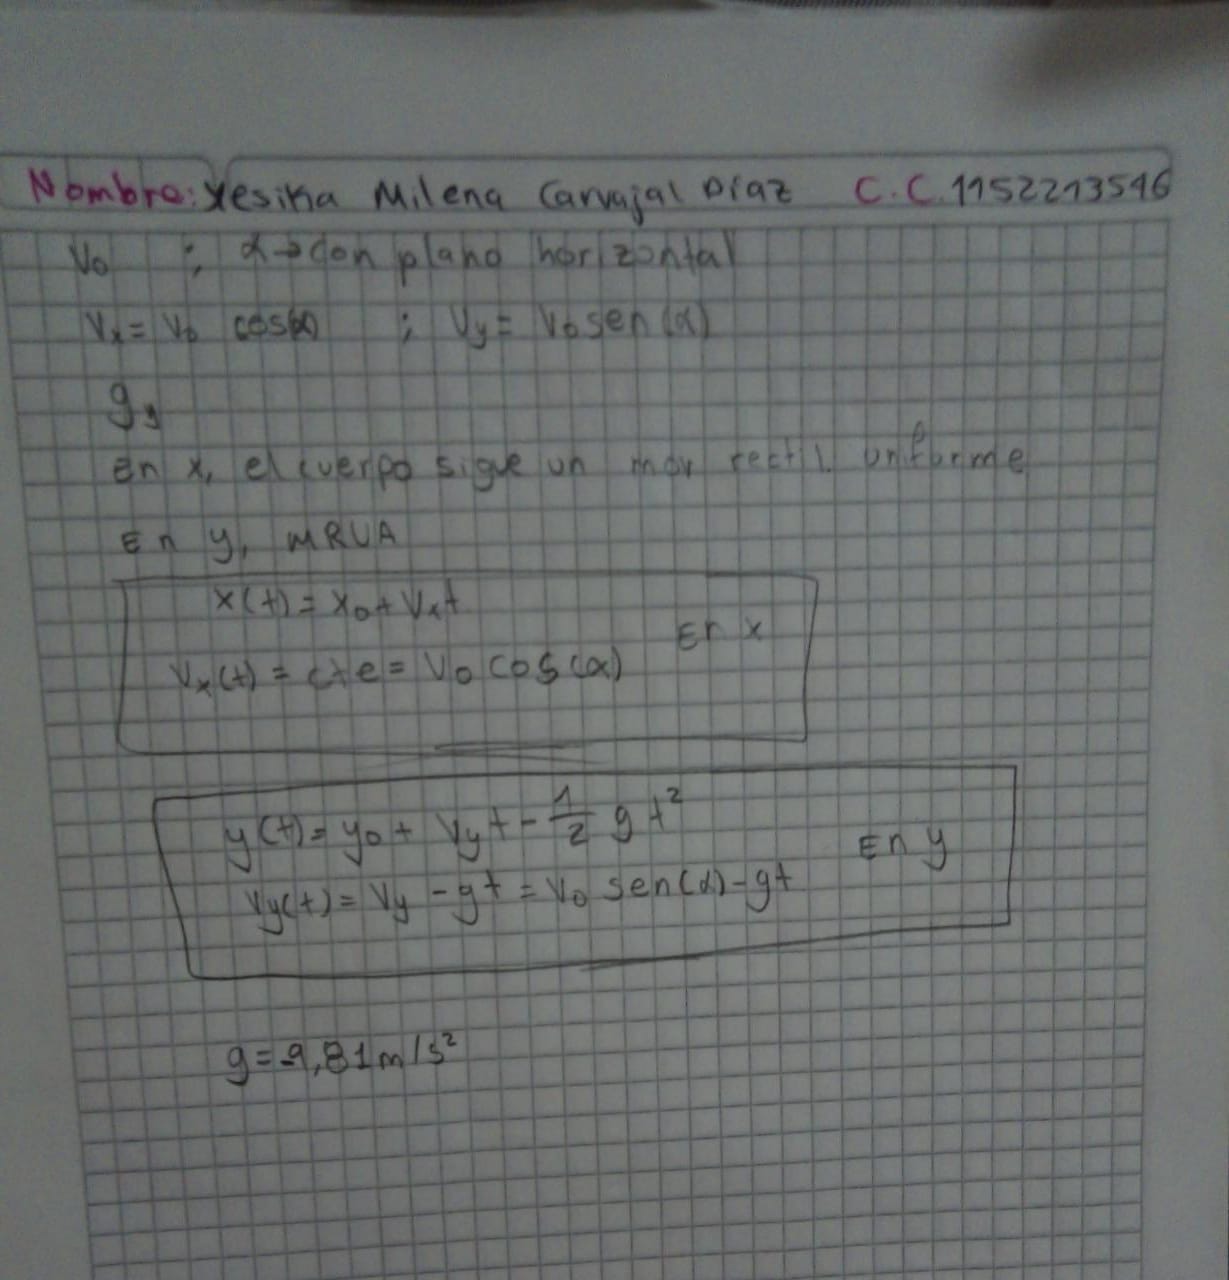 Nombre: Yesika Milena Carvajal Díaz C.C. 1152213546
V₀ ; α→con plano horizontal
Vₓ= V₀ cos(α) ; Vy= V₀ sen(α)
gy
en x, el cuerpo sigue un mov rectil. uniforme
En y, MRUA
x(t)= x₀+ Vₓt
En x
Vₓ(t) = cte = V₀ cos(α)
y(t)= y₀ + Vyt - 1/2 g t²
En y
Vy(t)= Vy - gt = V₀ sen(α)-gt
g=-9,81m/s²